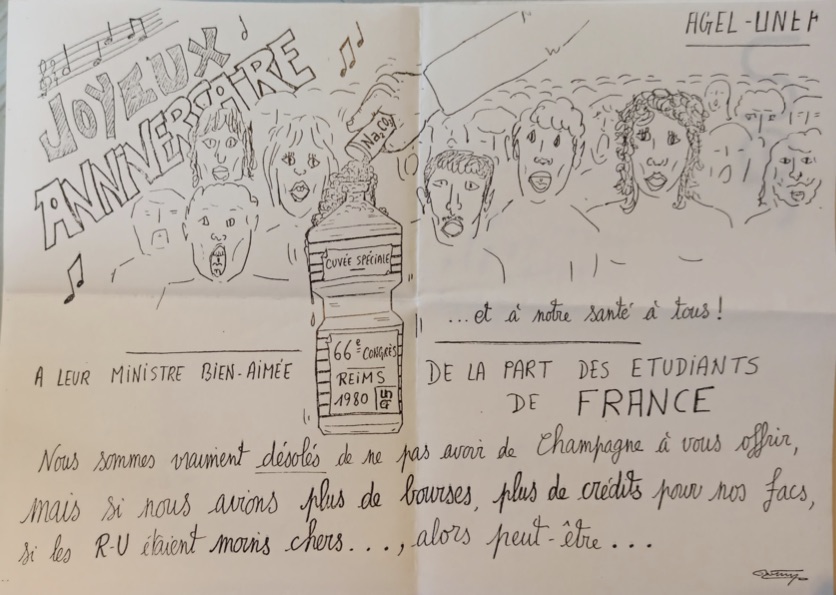 AGEL-UNEF
JOYEUX
ANNIVERSAIRE
Na₂CO₃
CUVÉE SPÉCIALE
... et à notre santé à tous !
66e CONGRÈS
REIMS
1980
A LEUR MINISTRE BIEN-AIMÉE
DE LA PART DES ETUDIANTS
DE FRANCE
Nous sommes vraiment désolés de ne pas avoir de Champagne à vous offrir,
mais si nous avions plus de bourses, plus de crédits pour nos facs,
si les R-U étaient moins chers...., alors peut-être...